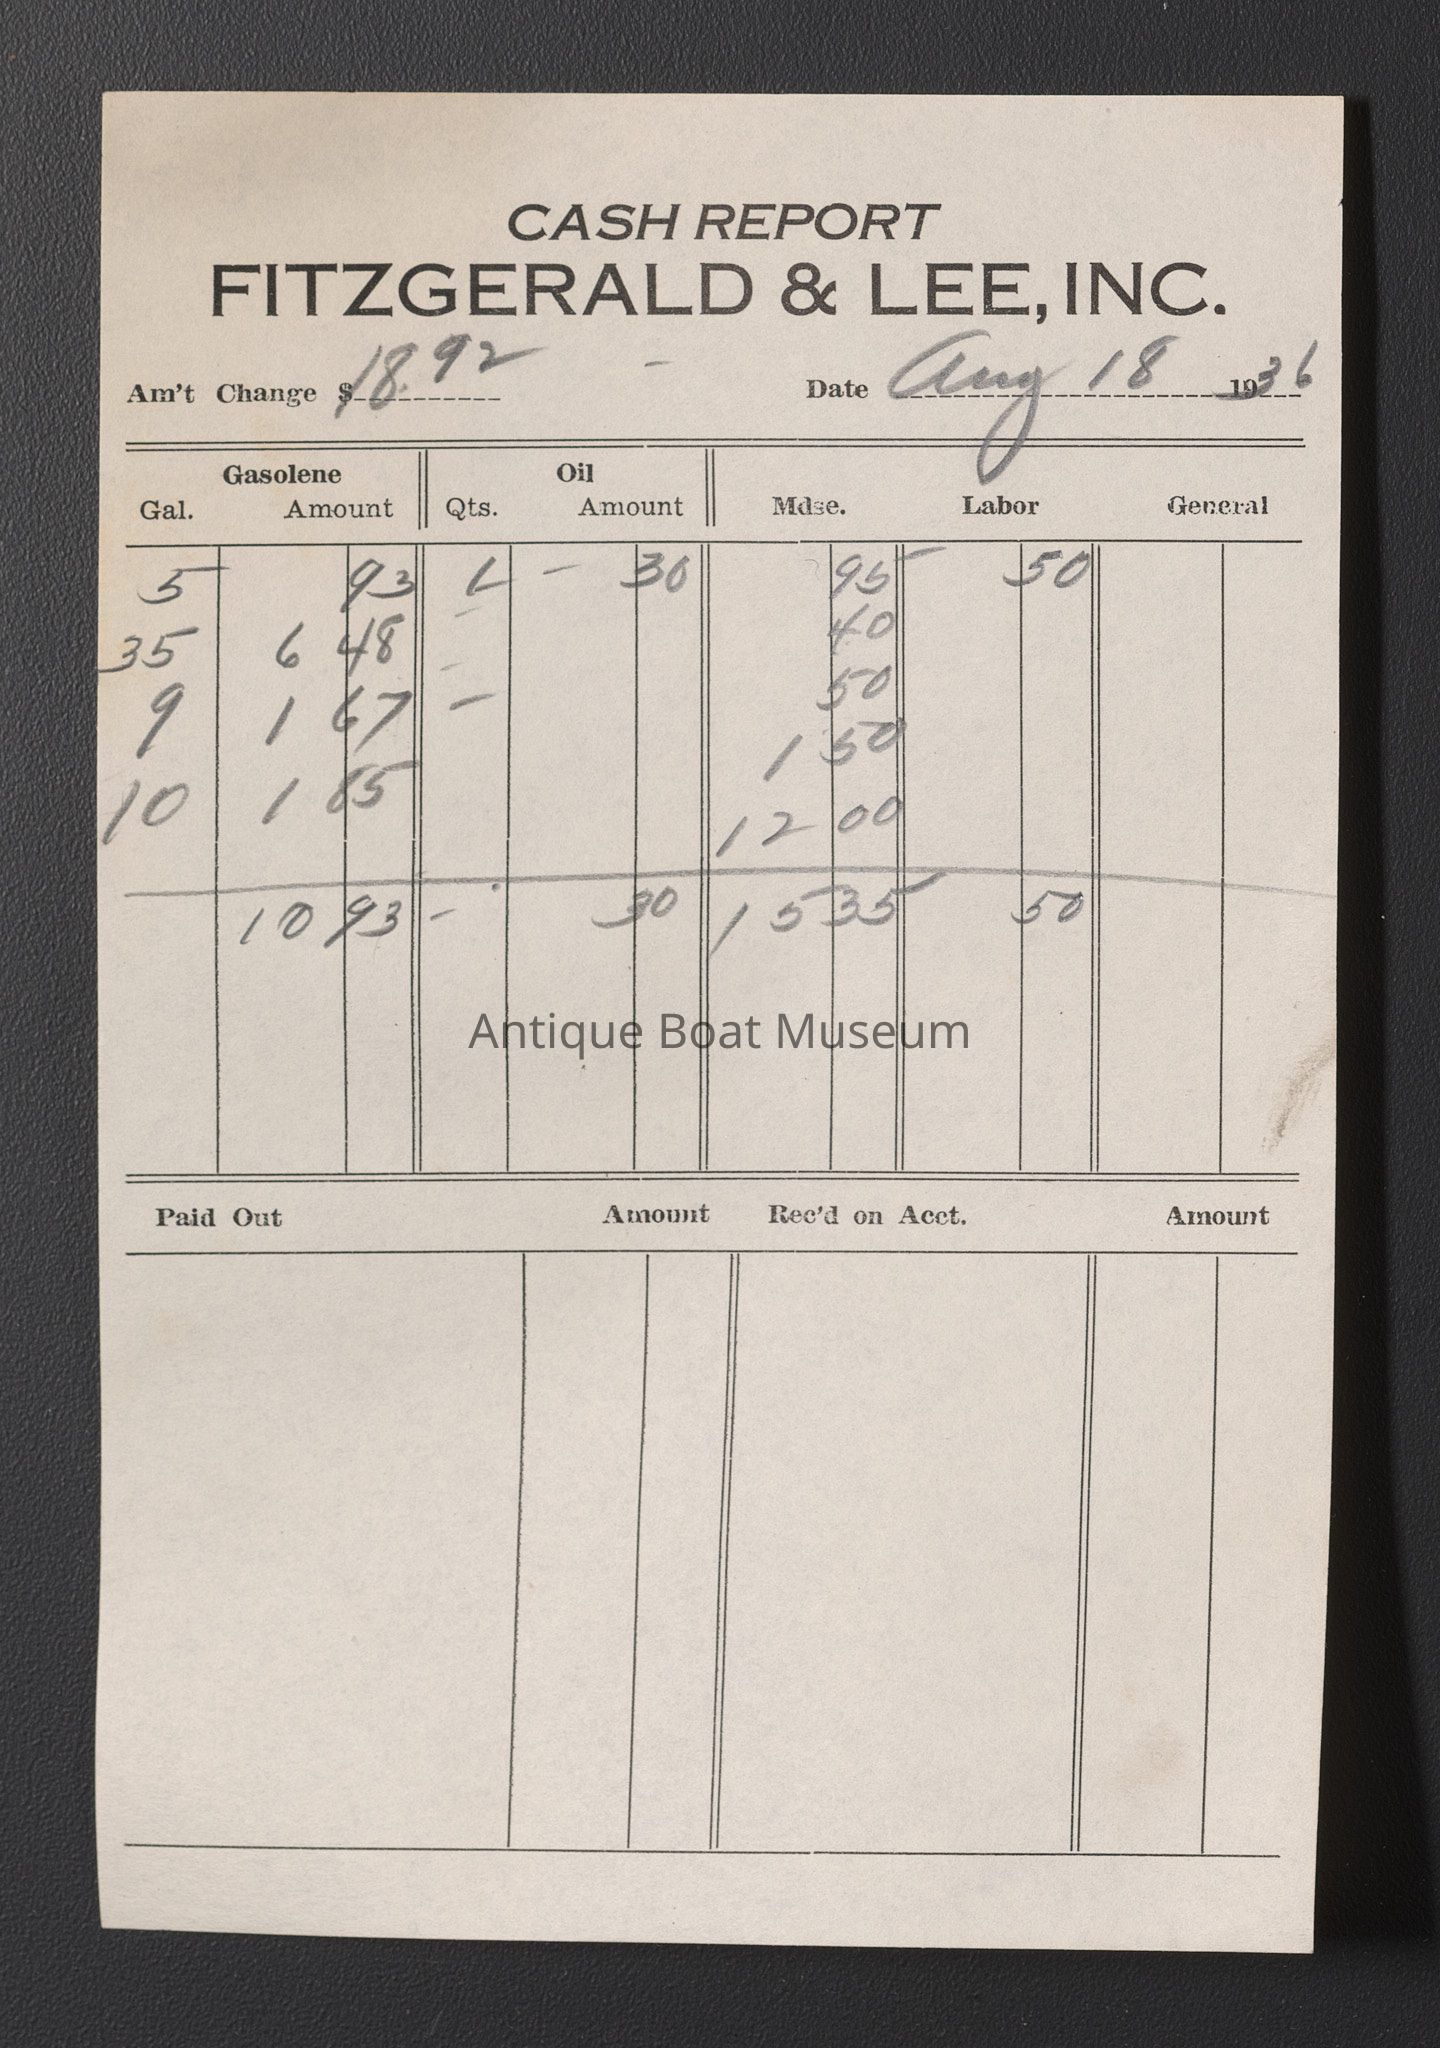 CASH REPORT
FITZGERALD & LEE, INC.
Am't Change $ 18.92 - Date Aug 18 1936
Gasolene Oil
Gal. Amount Qts. Amount Mdse. Labor General
5 93 1 - 30 95 50
35 6 48 - 40
9 1 67 - 50
10 1 85 1 50
12 00
10 93 - 30 15 35 50
Antique Boat Museum
Paid Out Amount Rec'd on Acct. Amount